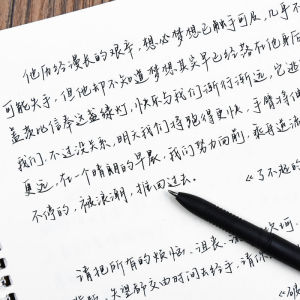 他历经漫长的艰辛，想必梦想已触手可及，几乎不
可能失手，但他却不知道梦想其实早已经落在他身后
盖茨比信奉这盏绿灯，快乐与我们渐行渐远，它逃
我们，不过没关系，明天我们将跑得更快，手臂将伸
更远，在一个晴朗的早晨，我们努力向前，乘舟逆流
不停的，被浪潮，推回过去。
《了不起的
请把所有的烦恼、沮丧、
失望都交由时间去给予，请你